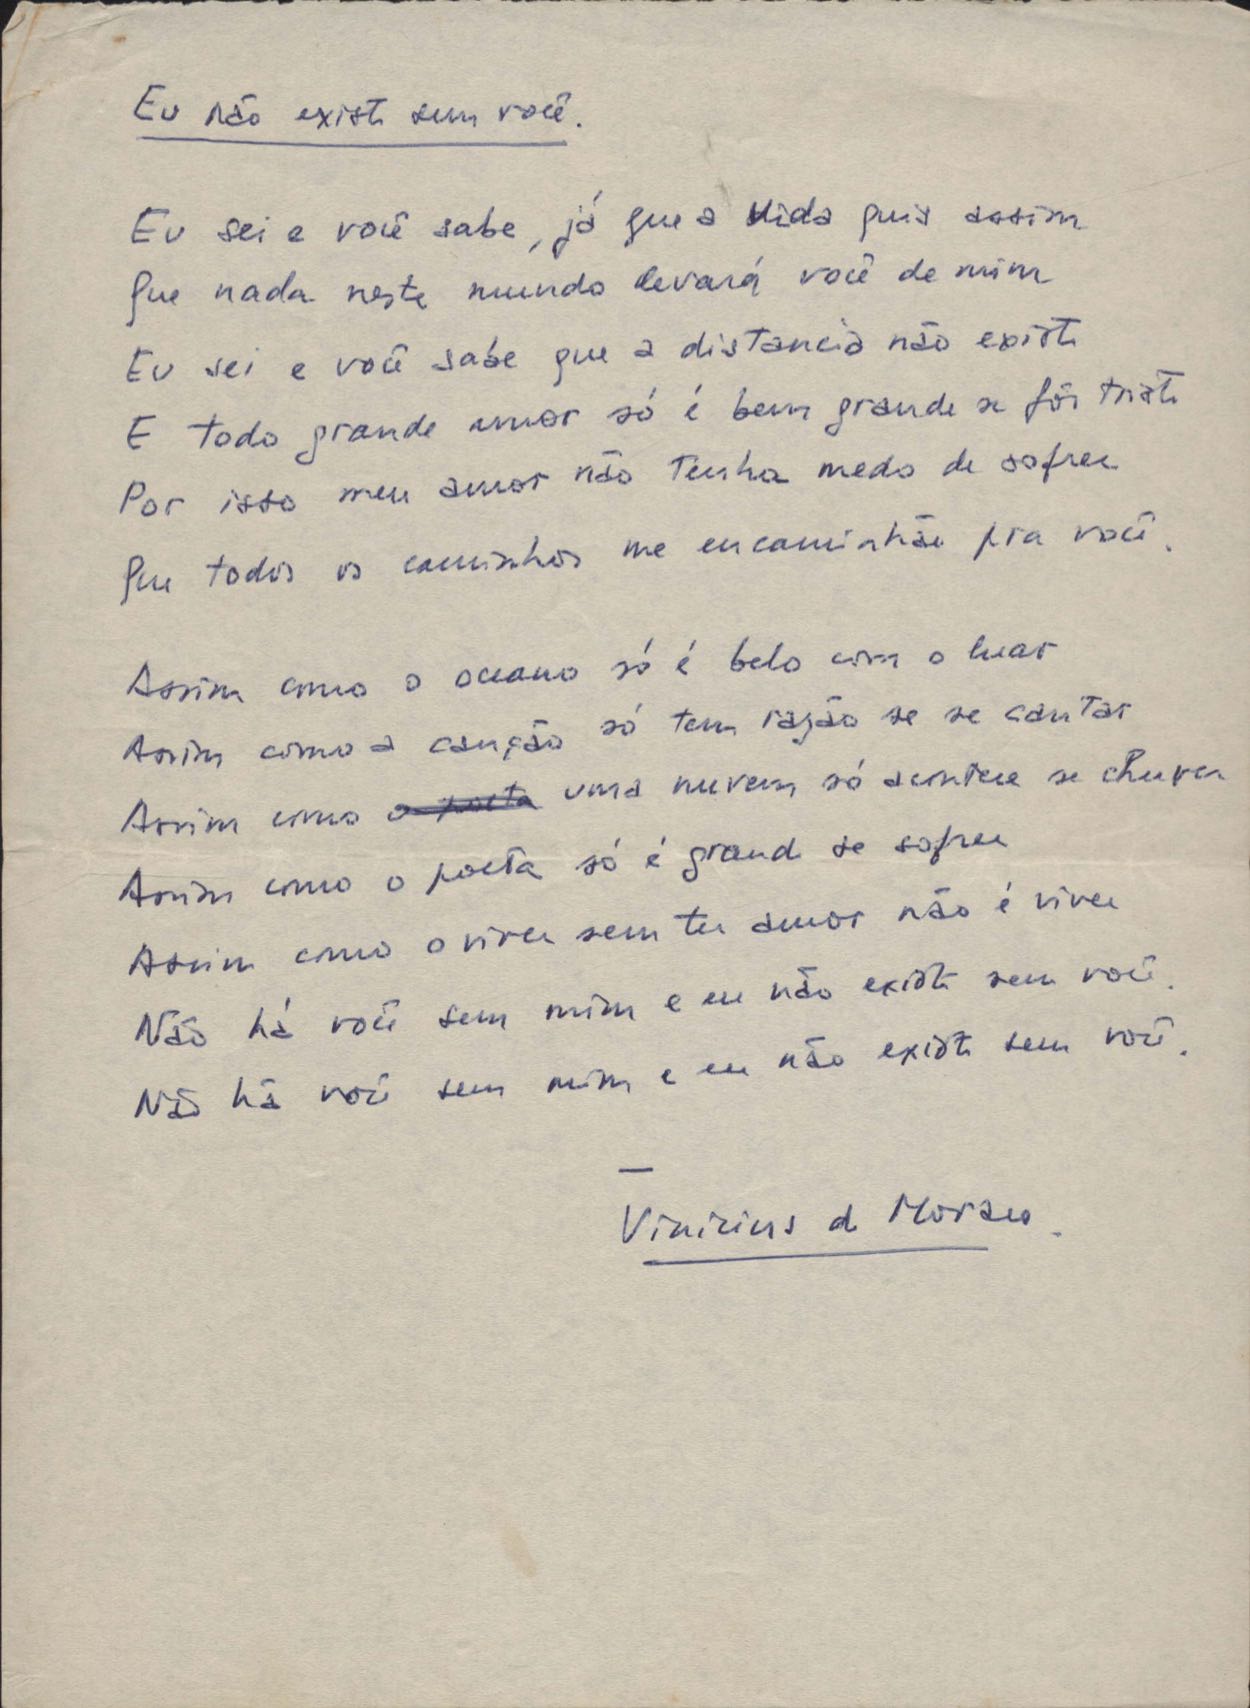 Eu não existo sem você.
Eu sei e você sabe, já que a vida quis assim
Que nada neste mundo levará você de mim
Eu sei e você sabe que a distancia não existe
E todo grande amor só é bem grande se fôr triste
Por isso meu amor não tenha medo de sofrer
Que todos os caminhos me encaminhão pra você.
Assim como o oceano só é belo com o luar
Assim como a canção só tem razão se se cantar
Assim como o poeta uma nuvem só acontece se chover
Assim como o poeta só é grande se sofrer
Assim como o viver sem ter amor não é viver
Não há você sem mim e eu não existo sem você.
Não há você sem mim e eu não existo sem você.
—
Vinicius de Moraes.